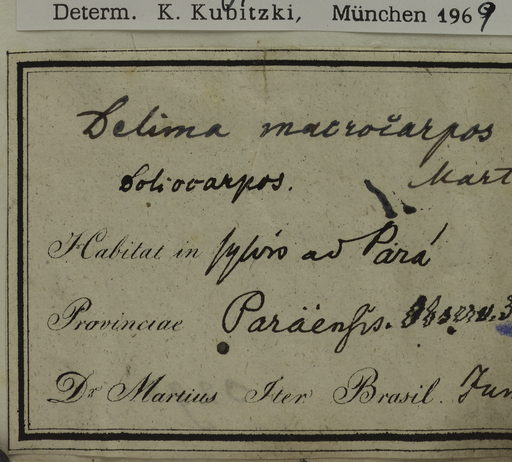 Determ. K. Kubitzki, München 1969
Delima macrocarpos
Soliocarpos. Mart
Habitat in sylvis ad Pará
Provinciae Paraënsis. Observ.
Dr. Martius Iter Brasil. Jun